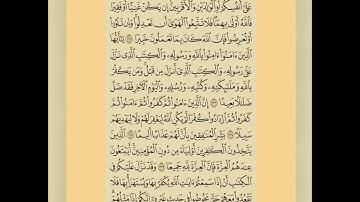 عَلَىٰٓ أَنفُسِكُمْ أَوِ ٱلْوَٰلِدَيْنِ وَٱلْأَقْرَبِينَ إِن يَكُنْ غَنِيًّا أَوْ فَقِيرًا
فَٱللَّهُ أَوْلَىٰ بِهِمَا فَلَا تَتَّبِعُوا۟ ٱلْهَوَىٰٓ أَن تَعْدِلُوا۟ وَإِن تَلْوُۥٓا۟
أَوْ تُعْرِضُوا۟ فَإِنَّ ٱللَّهَ كَانَ بِمَا تَعْمَلُونَ خَبِيرًا يَٰٓأَيُّهَا
ٱلَّذِينَ ءَامَنُوٓا۟ ءَامِنُوا۟ بِٱللَّهِ وَرَسُولِهِۦ وَٱلْكِتَٰبِ ٱلَّذِى نَزَّلَ
عَلَىٰ رَسُولِهِۦ وَٱلْكِتَٰبِ ٱلَّذِىٓ أَنزَلَ مِن قَبْلُ وَمَن يَكْفُرْ
بِٱللَّهِ وَمَلَٰٓئِكَتِهِۦ وَكُتُبِهِۦ وَرُسُلِهِۦ وَٱلْيَوْمِ ٱلْءَاخِرِ فَقَدْ ضَلَّ
ضَلَٰلًۢا بَعِيدًا إِنَّ ٱلَّذِينَ ءَامَنُوا۟ ثُمَّ كَفَرُوا۟ ثُمَّ ءَامَنُوا۟ ثُمَّ
كَفَرُوا۟ ثُمَّ ٱزْدَادُوا۟ كُفْرًا لَّمْ يَكُنِ ٱللَّهُ لِيَغْفِرَ لَهُمْ وَلَا لِيَهْدِيَهُمْ
سَبِيلًۢا بَشِّرِ ٱلْمُنَٰفِقِينَ بِأَنَّ لَهُمْ عَذَابًا أَلِيمًا ٱلَّذِينَ
يَتَّخِذُونَ ٱلْكَٰفِرِينَ أَوْلِيَآءَ مِن دُونِ ٱلْمُؤْمِنِينَ أَيَبْتَغُونَ
عِندَهُمُ ٱلْعِزَّةَ فَإِنَّ ٱلْعِزَّةَ لِلَّهِ جَمِيعًا وَقَدْ نَزَّلَ عَلَيْكُمْ فِى
ٱلْكِتَٰبِ أَنْ إِذَا سَمِعْتُمْ ءَايَٰتِ ٱللَّهِ يُكْفَرُ بِهَا وَيُسْتَهْزَأُ بِهَا فَلَا
تَقْعُدُوا۟ مَعَهُمْ حَتَّىٰ يَخُوضُوا۟ فِى حَدِيثٍ غَيْرِهِۦٓ إِنَّكُمْ إِذًا مِّثْلُهُمْ